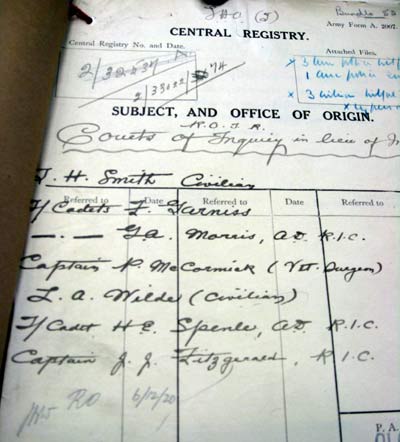 Bundle 52
CENTRAL REGISTRY.
Army Form A. 2007.
Central Registry No. and Date.
Attached Files.
2/32837
74
SUBJECT, AND OFFICE OF ORIGIN.
R.O.I.R.
Courts of Inquiry in lieu of
T. H. Smith Civilian
Referred to Date Referred to Date Referred to
T/Cadets F. Garniss
— — G.A. Morris, A.D. R.I.C.
Captain P. McCormick (Vet. Surgeon)
L. A. Wilde (Civilian)
T/Cadet H E. Spenle, A.D. R.I.C.
Captain J. J. Fitzgerald, R.I.C.
RO 6/12/20
P. A.